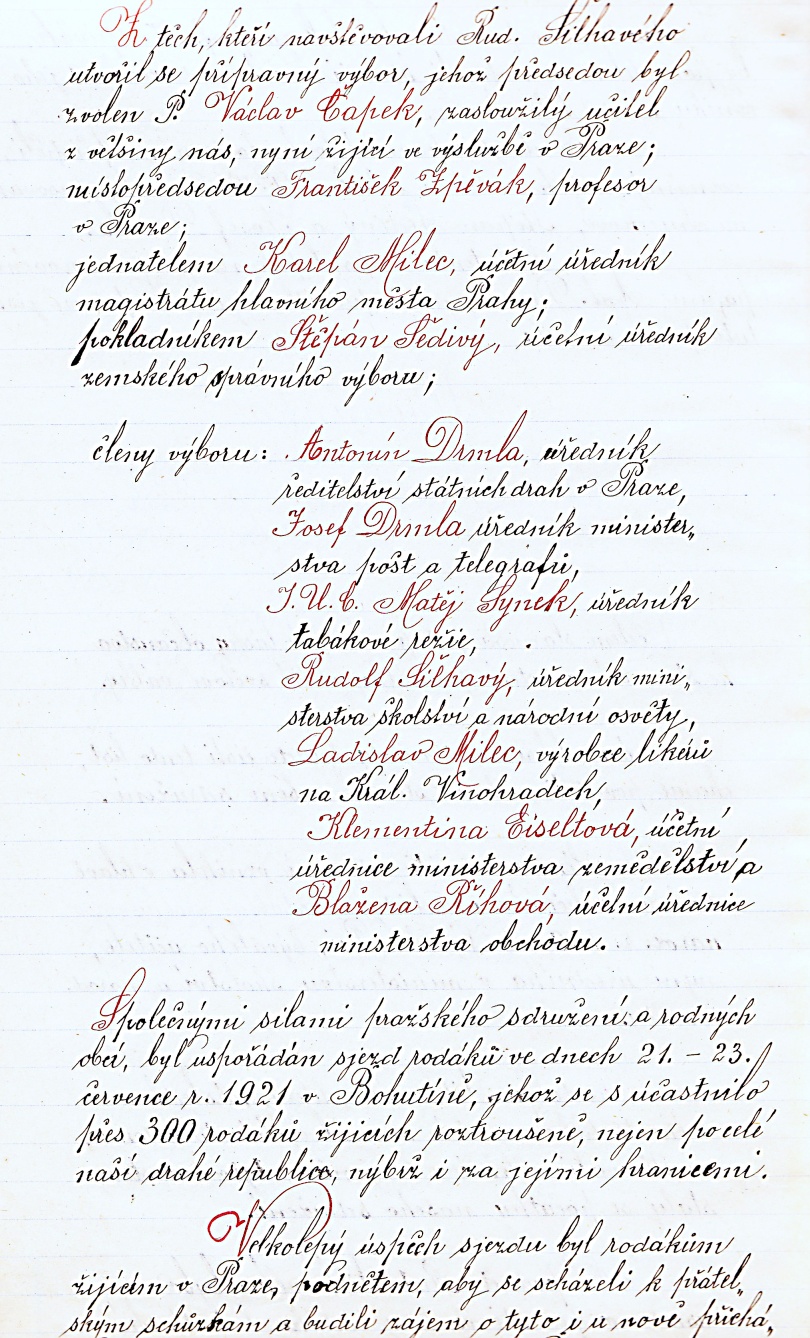 Z těch, kteří navštěvovali Rud. Šilhavého
utvořil se přípravný výbor, jehož předsedou byl
zvolen P. Václav Čapek, zasloužilý učitel
z většiny nás, nyní žijící ve výslužbě v Praze;
místopředsedou František Zpěvák, profesor
v Praze;
jednatelem Karel Milec, účetní úředník
magistrátu hlavního města Prahy;
pokladníkem Štěpán Šedivý, účetní úředník
zemského správního výboru;
členy výboru: Antonín Drmla, úředník
ředitelství státních drah v Praze,
Josef Drmla úředník minister„
stva pošt a telegrafů,
J.U.C. Matěj Synek, úředník
tabákové režie,
Rudolf Šilhavý, úředník mini„
sterstva školství a národní osvěty,
Ladislav Milec, výrobce likérů
na Král. Vinohradech,
Klementina Eiseltová, účetní
úřednice ministerstva zemědělství a
Blažena Říhová, účetní úřednice
ministerstva obchodu.
Společnými silami pražského sdružení a rodných
obcí, byl uspořádán sjezd rodáků ve dnech 21. – 23.
července r. 1921 v Bohutíně, jehož se súčastnilo
přes 300 rodáků žijících roztroušeně, nejen po celé
naší drahé republice, nýbrž i za jejími hranicemi.
Velkolepý úspěch sjezdu byl rodákům
žijícím v Praze, podnětem, aby se scházeli k přátel„
ským schůzkám a budili zájem o tyto i u nově přichá„